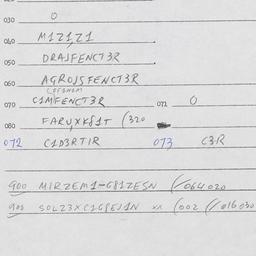 030 0
040 M1Z1Z1
050 DRAJFENCT3R
060 AGROJSFENCT3R
070 C1MFENCT3R 071 0
080 FARYXK81T (320
072 C1D3RT1R 073 C3R
900 MIRZEM1-G81ZESN (/064020
900 SOLZ3XC1G8EJ1N xx (002 (/016030